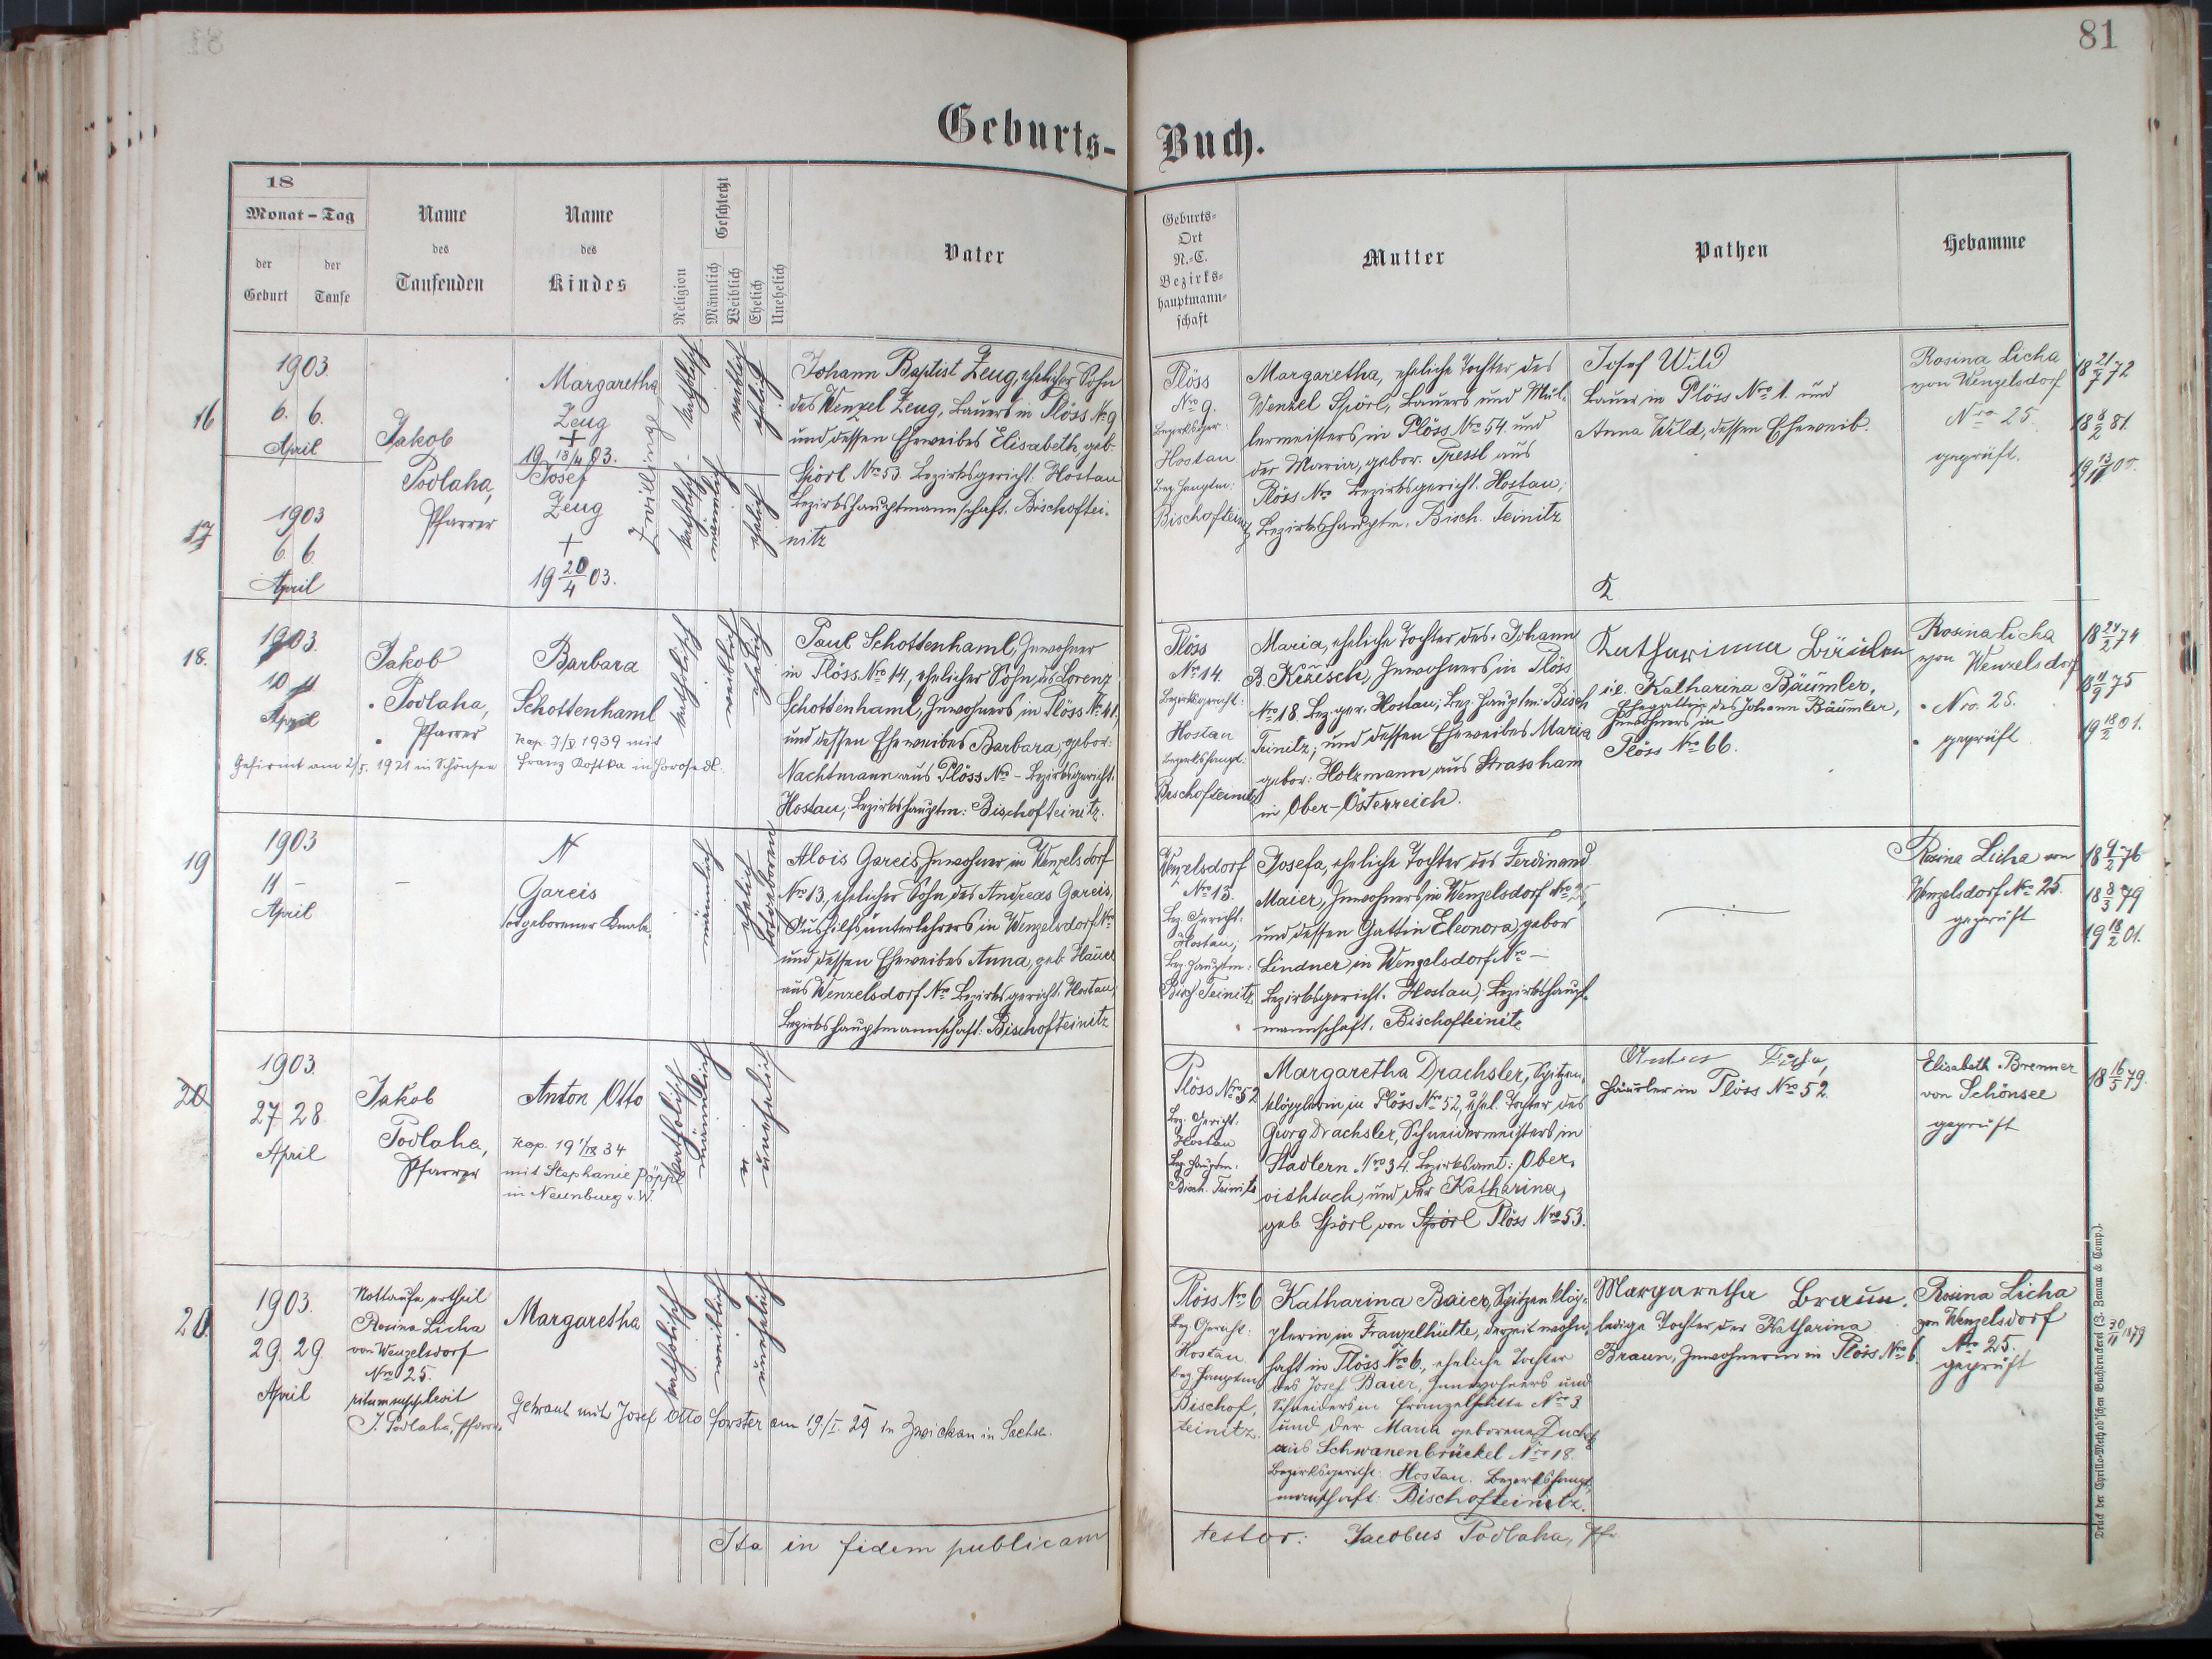 81
Geburts-Buch.
18
Monat - Tag
der Geburt
der Taufe
Name des Taufenden
Name des Kindes
Religion
Geschlecht
Männlich
Weiblich
Ehelich
Unehelich
Vater
Geburts-
Ort
N.-C.
Bezirks-
hauptmann-
schaft
Mutter
Pathen
Hebamme
16
1903.
6. 6.
April
Jakob
Podlaha,
Pfarrer
Margaretha
Zeug
+
19 18/4 03.
Zwillinge
katholisch
weiblich
ehelich
17
1903
6. 6.
April
Josef
Zeug
+
19 20/4 03.
katholisch
männlich
ehelich
Johann Baptist Zeug, ehelicher Sohn
des Wenzel Zeug, Bauers in Plöss No 9
und dessen Eheweibes Elisabeth, geb.
Spörl Nro 53. Bezirksgericht: Hostau
Bezirkshauptmannschaft. Bischoftei-
nitz
Plöss
Nro 9.
Bezirksger:
Hostau.
Bez. Hauptm:
Bischofteinitz
Margaretha, eheliche Tochter des
Wenzel Spörl, Bauers und Mül-
lermeisters in Plöss Nro 54. und
der Maria, gebor. Pressl aus
Plöss Nro Bezirksgericht. Hostau;
Bezirkshauptm. Bisch. Teinitz
Josef Wild
Bauer in Plöss Nro 1. und
Anna Wild, dessen Eheweib.
Rosina Licha
von Wenzelsdorf
Nro 25
geprüft.
18 21/7 72
18 8/2 81
18.
1903.
10 11
April
Jakob
Podlaha,
Pfarrer
Barbara
Schottenhaml
kop. 7/X 1939 mit
Franz Kostka in
Gefirmt am 2/5. 1921 in Schönsee
katholisch
weiblich
ehelich
Paul Schottenhaml, Inwohner
in Plöss Nro 14, ehelicher Sohn des Lorenz
Schottenhaml, Inwohners in Plöss No 41,
und dessen Eheweibes Barbara, gebor:
Nachtmann aus Plöss Nro - Bezirksgericht.
Hostau, Bezirkshauptm: Bischofteinitz.
Plöss
Nro 14.
Bezirksgericht:
Hostau
Bezirkshaupt.
Bischofteinitz
Maria, eheliche Tochter des Johann
B. Křižisch, Inwohners in Plöss
Nro 18. Bez. ger. Hostau; Bez. Hauptm: Bisch
Teinitz; und dessen Eheweibes Maria
gebor: Holzmann aus Strassham
in Ober-Österreich.
Katharina
i.e. Katharina Bäumler,
Ehegattin des Johann Bäumler,
Inwohners in
Plöss Nro 66.
Rosina Licha
von Wenzelsdorf
Nro. 25.
geprüft
18 24/2 74
18 11/9 75
19 18/2 01.
19
1903
11 -
April
-
N
Gareis
todgeborener Knabe.
männlich
ehelich
todgeboren
Alois Gareis, Inwohner in Wenzelsdorf
Nro 13., ehelicher Sohn des Andreas Gareis,
Aushilfsunterlehrers in Wenzelsdorf Nro
und dessen Eheweibes Anna, geb. Häuer
aus Wenzelsdorf Nro Bezirksgericht. Hostau,
Bezirkshauptmannschaft: Bischofteinitz
Wenzelsdorf
Nro 13.
Bez. Gericht.
Hostau,
Bez. Hauptm:
Bisch Teinitz
Josefa, eheliche Tochter des Ferdinand
Maier, Inwohners in Wenzelsdorf Nro
und dessen Gattin Eleonora, gebor
Lindner in Wenzelsdorf Nro -
Bezirksgericht. Hostau; Bezirkshaupt-
mannschaft. Bischofteinitz
Rosina Licha von
Wenzelsdorf Nro 25.
geprüft
18 9/2 76
18 8/3 79
19 18/2 01.
20
1903.
27 28.
April
Jakob
Podlaha,
Pfarrer
Anton Otto
kop. 19 1/IX 34
mit Stephanie Pöppl
in Neunburg v. W.
katholisch
männlich
unehelich
Plöss Nro 52
Bez. Gericht.
Hostau
Bez. Hauptm.
Bisch. Teinitz
Margaretha Drachsler, Spitzen-
klöpplerin in Plöss Nro 52, ehel. Tochter des
Georg Drachsler, Schneidermeisters in
Stadlern Nro 34. Bezirksamt: Ober-
viechtach, und der Katharina,
geb. Spörl von Spörl Plöss Nro 53.
Häusler in Plöss Nro 52.
Elisabeth Brenner
von Schönsee
geprüft
18 16/5 79.
20.
1903.
29. 29.
April
Nottaufe ertheil
Rosina Licha
von Wenzelsdorf
Nro 25.
ritum supplevit
J. Podlaha, Pfarrer
Margaretha
katholisch
weiblich
unehelich
Getraut mit Josef Otto Forster am 19./I. 29 in Zwickau in Sachsen.
Plöss Nro 6
Bez. Gericht:
Hostau
Bez. Hauptm
Bischof-
teinitz.
Katharina Baier, Spitzenklöp-
plerin in Franzelhütte, derzeit wohn-
haft in Plöss Nro 6, eheliche Tochter
des Josef Baier, Inwohners und
Schneiders in Franzelhütte Nro 3
und der Maria geborene
aus Schwanenbrückel Nro 18.
Bezirksgericht: Hostau. Bezirkshaupt-
mannschaft: Bischofteinitz.
Margaretha Braun.
ledige Tochter der Katharina
Braun, Inwohnerin in Plöss Nro 6.
Rosina Licha
von Wenzelsdorf
Nro 25.
geprüft
30/11 1879
Ita in fidem publicam
testor: Jacobus Podlaha, Pfr.
Druck der Cyrillo-Method'schen Buchdruckerei (J. Zeman & Comp.).